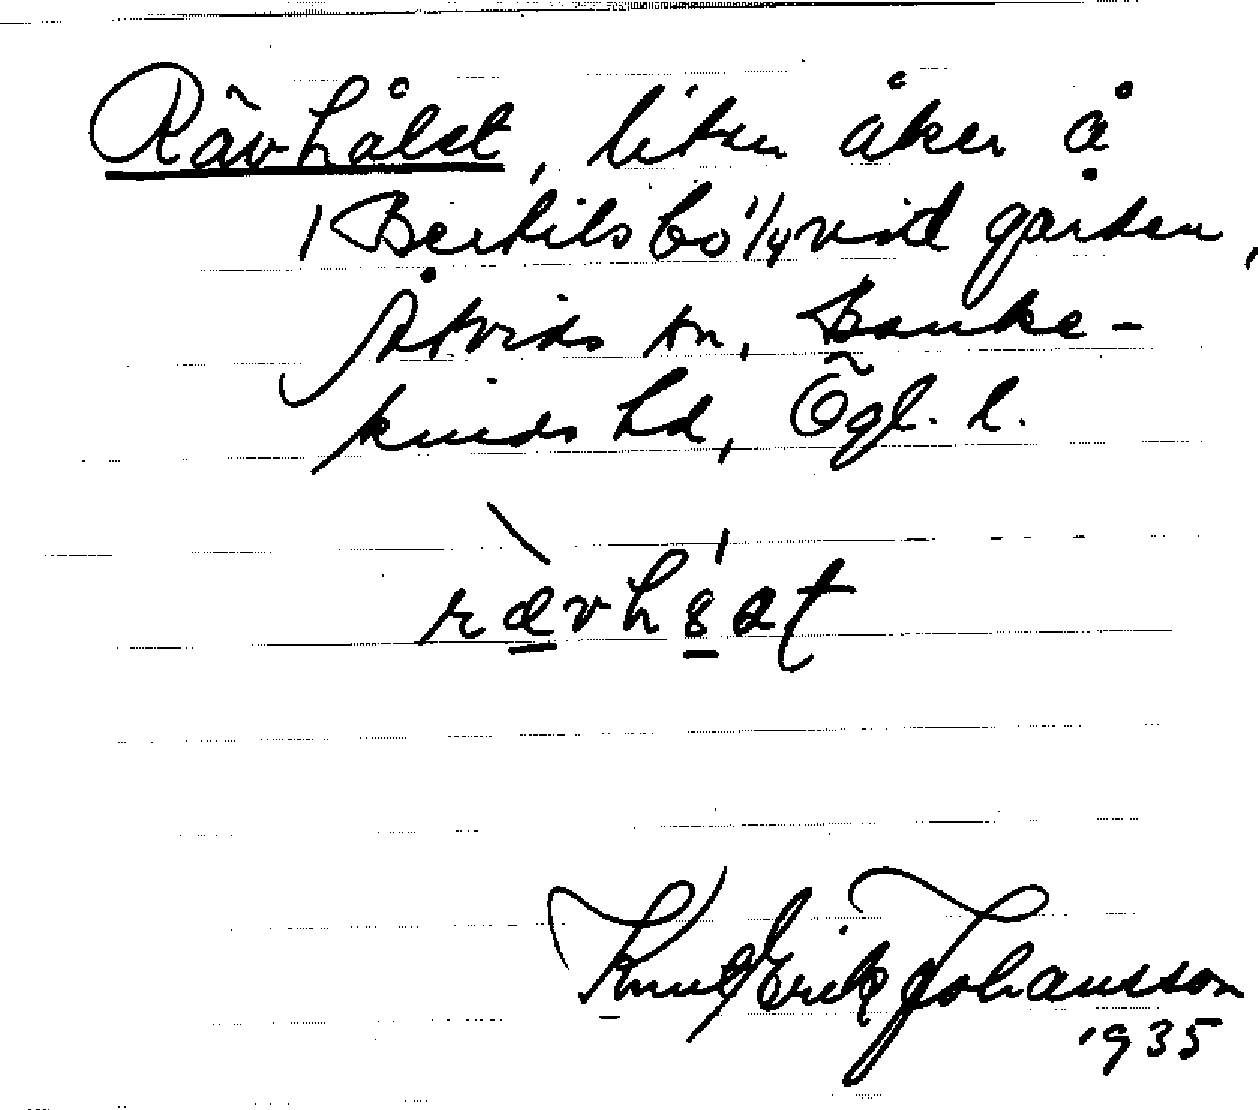 Rävhålet, liten åker å
1 Bertilsbo 1/4 vid gården,
Åtvids sn, Banke-
kinds hd, Ögl. l.
Knut Erik Johansson
1935